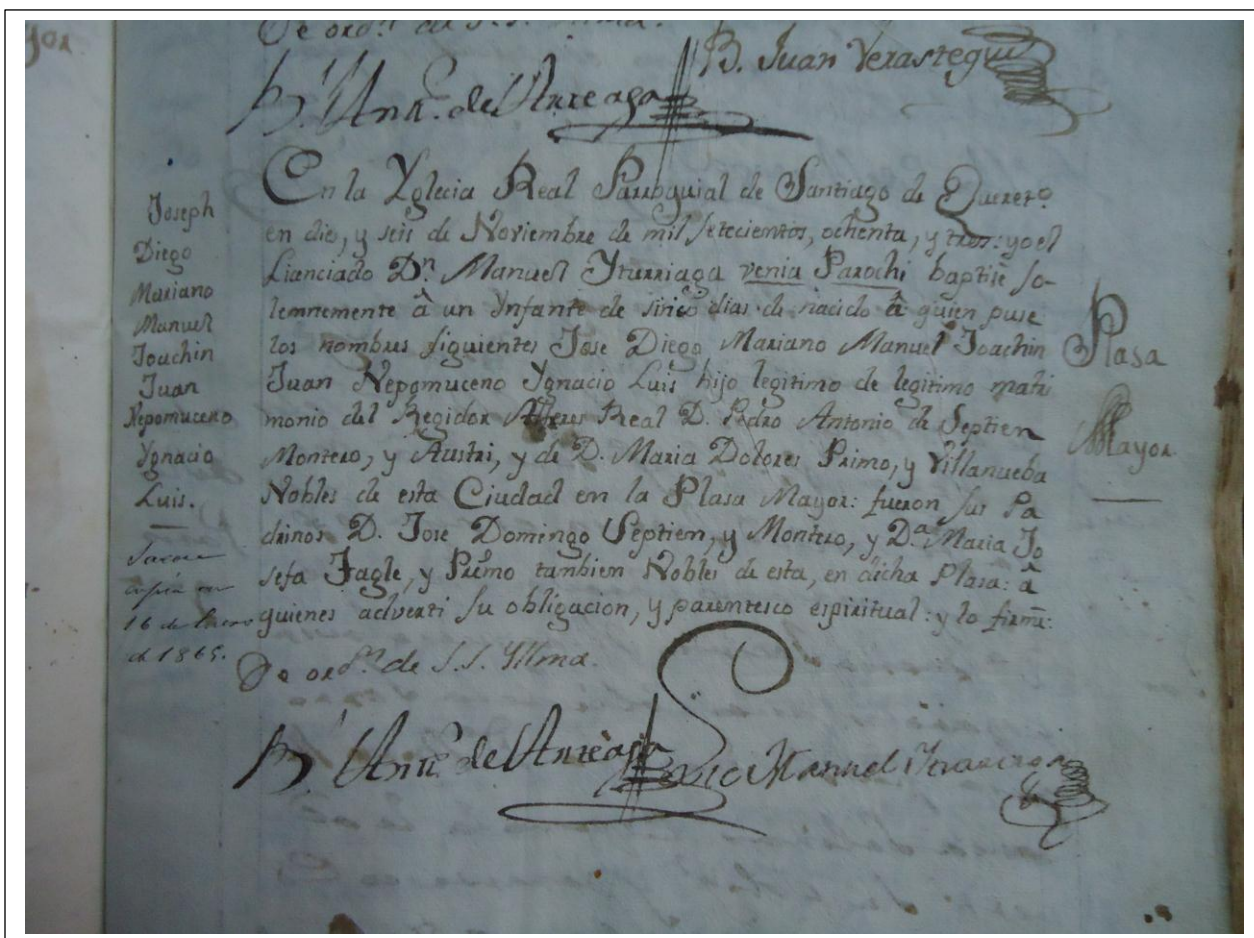 yor
De ord.ⁿ de S.S. Yllma.
B. Juan Verastegui
B.ʳ Ant.º de Arreaga
Joseph
Diego
Mariano
Manuel
Joachin
Juan
Nepomuceno
Ygnacio
Luis.
Sacose
copia en
16 de Enero
de 1865.
En la Yglecia Real Parroquial de Santiago de Queret.º
en die, y seis de Noviembre de mil setecientos, ochenta, y tres: yo el
Lianciado D.ⁿ Manuel Yturriaga venia Parochi baptisé so-
lemnemente â un Ynfante de sinco dias de nacido â quien puse
los nombres siguientes Jose Diego Mariano Manuel Joachin
Juan Nepomuceno Ygnacio Luis hijo legitimo de legitimo matri
monio del Regidor Alferes Real D. Pedro Antonio de Septien
Montero, y Austri, y de D. Maria Dolores Primo, y Villanueba
Nobles de esta Ciudad en la Plasa Mayor: fueron sus Pa
drinos D. Jose Domingo Septien, y Montero, y D.ª Maria Jo
sefa Jagle, y Primo tambien Nobles de esta, en dicha Plasa: â
quienes adverti su obligacion, y parentesco espiritual: y lo firmé:
Plasa
Mayor
De ord.ⁿ de S.S. Yllma.
B.ʳ Ant.º de Arreaga
Manuel Yturriaga